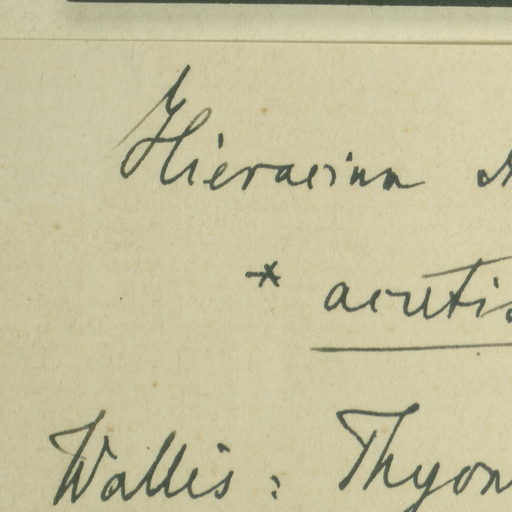 Hieracium
* acutis
Wallis: Thyon